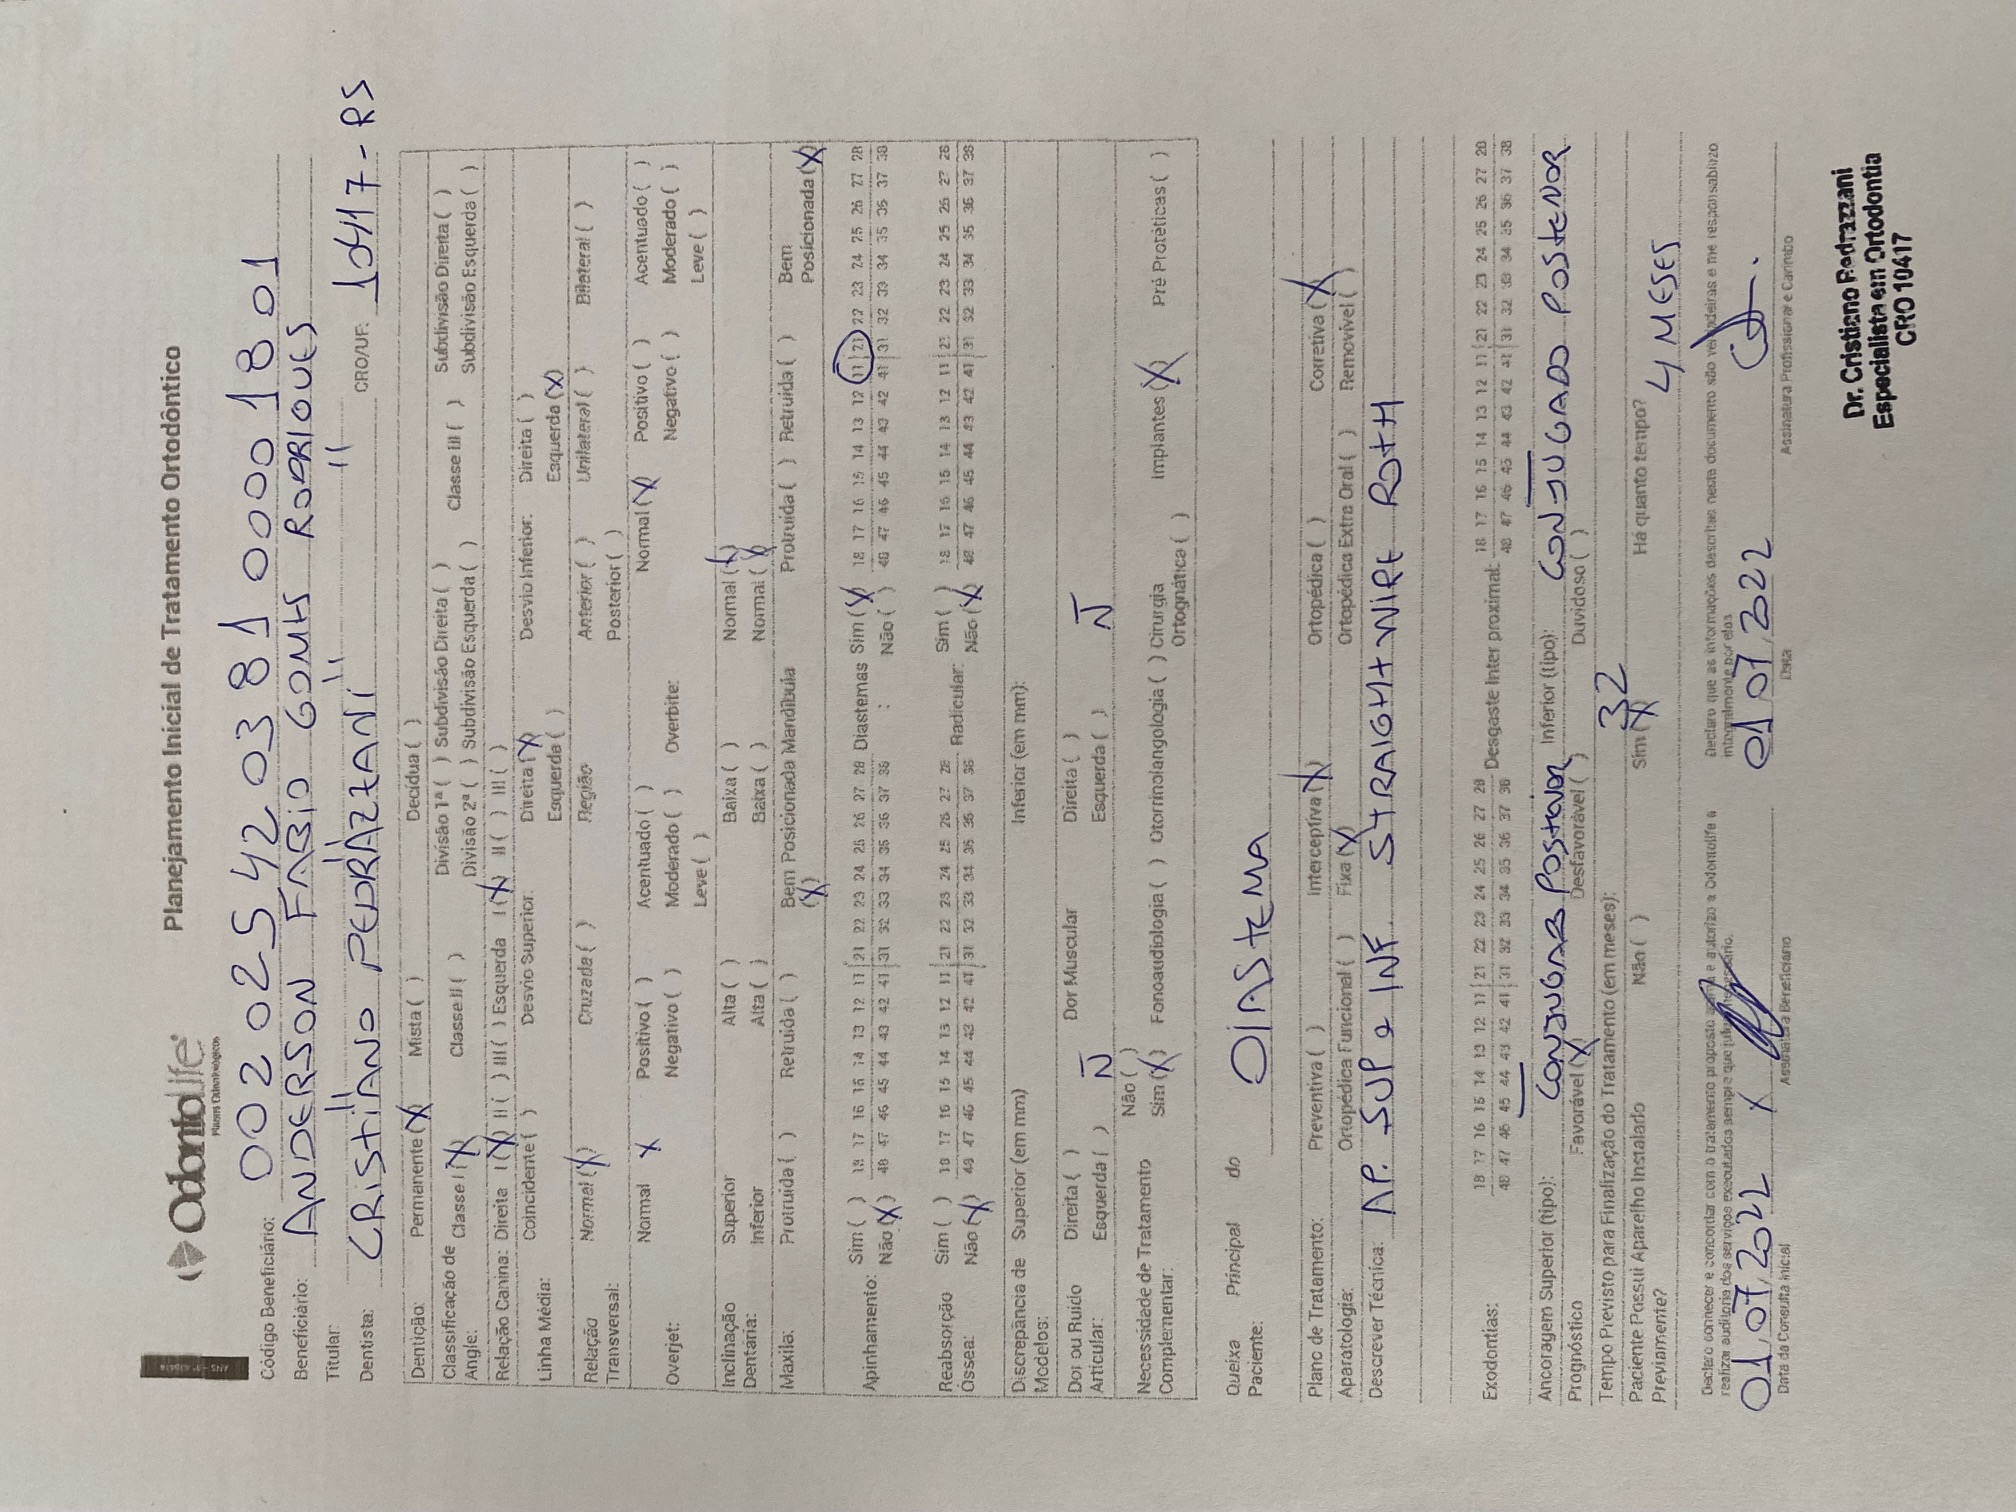 ANS - Nº
Odontolife
Planos Odontológicos
Planejamento Inicial de Tratamento Ortodôntico
Código Beneficiário: 002 025 42 03 81 0000 18 01
Beneficiário: ANDERSON FABIO GOMES RODRIGUES
Titular: " " " "
Dentista: CRISTIANO PEDRAZZANI CRO/UF: 10417-RS
Dentição: Permanente (X) Mista ( ) Decídua ( )
Classificação de Angle: Classe I (X) Classe II ( ) Divisão 1ª ( ) Subdivisão Direita ( ) Classe III ( ) Subdivisão Direita ( )
Divisão 2ª ( ) Subdivisão Esquerda ( ) Subdivisão Esquerda ( )
Relação Canina: Direita I (X) II ( ) III ( ) Esquerda I (X) II ( ) III ( )
Linha Média: Coincidente ( ) Desvio Superior: Direita (X) Desvio Inferior: Direita ( )
Esquerda ( ) Esquerda (X)
Relação Transversal: Normal (X) Cruzada ( ) Região Anterior ( ) Unilateral ( ) Bilateral ( )
Posterior ( )
Overjet: Normal X Positivo ( ) Acentuado ( ) Overbite: Normal (X) Positivo ( ) Acentuado ( )
Negativo ( ) Moderado ( ) Negativo ( ) Moderado ( )
Leve ( ) Leve ( )
Inclinação Dentária: Superior Alta ( ) Baixa ( ) Normal (X)
Inferior Alta ( ) Baixa ( ) Normal (X)
Maxila: Protruída ( ) Retruída ( ) Bem Posicionada (X) Mandíbula Protruída ( ) Retruída ( ) Bem Posicionada (X)
Apinhamento: Sim ( ) 18 17 16 15 14 13 12 11 | 21 22 23 24 25 26 27 28 Diastemas: Sim (X) 18 17 16 15 14 13 12 11 | 21 22 23 24 25 26 27 28
Não (X) 48 47 46 45 44 43 42 41 | 31 32 33 34 35 36 37 38 Não ( ) 48 47 46 45 44 43 42 41 | 31 32 33 34 35 36 37 38
Reabsorção Óssea: Sim ( ) 18 17 16 15 14 13 12 11 | 21 22 23 24 25 26 27 28 Radicular: Sim ( ) 18 17 16 15 14 13 12 11 | 21 22 23 24 25 26 27 28
Não (X) 48 47 46 45 44 43 42 41 | 31 32 33 34 35 36 37 38 Não (X) 48 47 46 45 44 43 42 41 | 31 32 33 34 35 36 37 38
Discrepância de Modelos: Superior (em mm) Inferior (em mm):
Dor ou Ruído Articular: Direita ( ) Dor Muscular Direita ( )
Esquerda ( ) Ñ Esquerda ( ) Ñ
Necessidade de Tratamento Complementar: Não ( )
Sim (X) Fonoaudiologia ( ) Otorrinolaringologia ( ) Cirurgia Ortognática ( ) Implantes (X) Pré Protéticas ( )
Queixa Principal do Paciente: DIASTEMA
Plano de Tratamento: Preventiva ( ) Interceptiva (X) Ortopédica ( ) Corretiva (X)
Aparatologia: Ortopédica Funcional ( ) Fixa (X) Ortopédica Extra Oral ( ) Removível ( )
Descrever Técnica: AP. SUP e INF. STRAIGHT WIRE ROTH
Exodontias: 18 17 16 15 14 13 12 11 | 21 22 23 24 25 26 27 28 Desgaste Inter proximal: 18 17 16 15 14 13 12 11 | 21 22 23 24 25 26 27 28
48 47 46 45 44 43 42 41 | 31 32 33 34 35 36 37 38 48 47 46 45 44 43 42 41 | 31 32 33 34 35 36 37 38
Ancoragem Superior (tipo): CONJUGAR POSTERIOR Inferior (tipo): CONJUGADO POSTERIOR
Prognóstico Favorável (X) Desfavorável ( ) Duvidoso ( )
Tempo Previsto para Finalização do Tratamento (em meses): 32
Paciente Possui Aparelho Instalado Previamente? Não ( ) Sim (X) Há quanto tempo? 4 MESES
Declaro conhecer e concordar com o tratamento proposto acima e autorizo a Odontolife a realizar auditoria dos serviços executados sempre que julgar necessário.
Declaro que as informações descritas neste documento são verdadeiras e me responsabilizo integralmente por elas
01/07/2022 X 01/07/2022
Data da Consulta Inicial Assinatura Beneficiário Data Assinatura Profissional e Carimbo
Dr. Cristiano Pedrazzani
Especialista em Ortodontia
CRO 10417